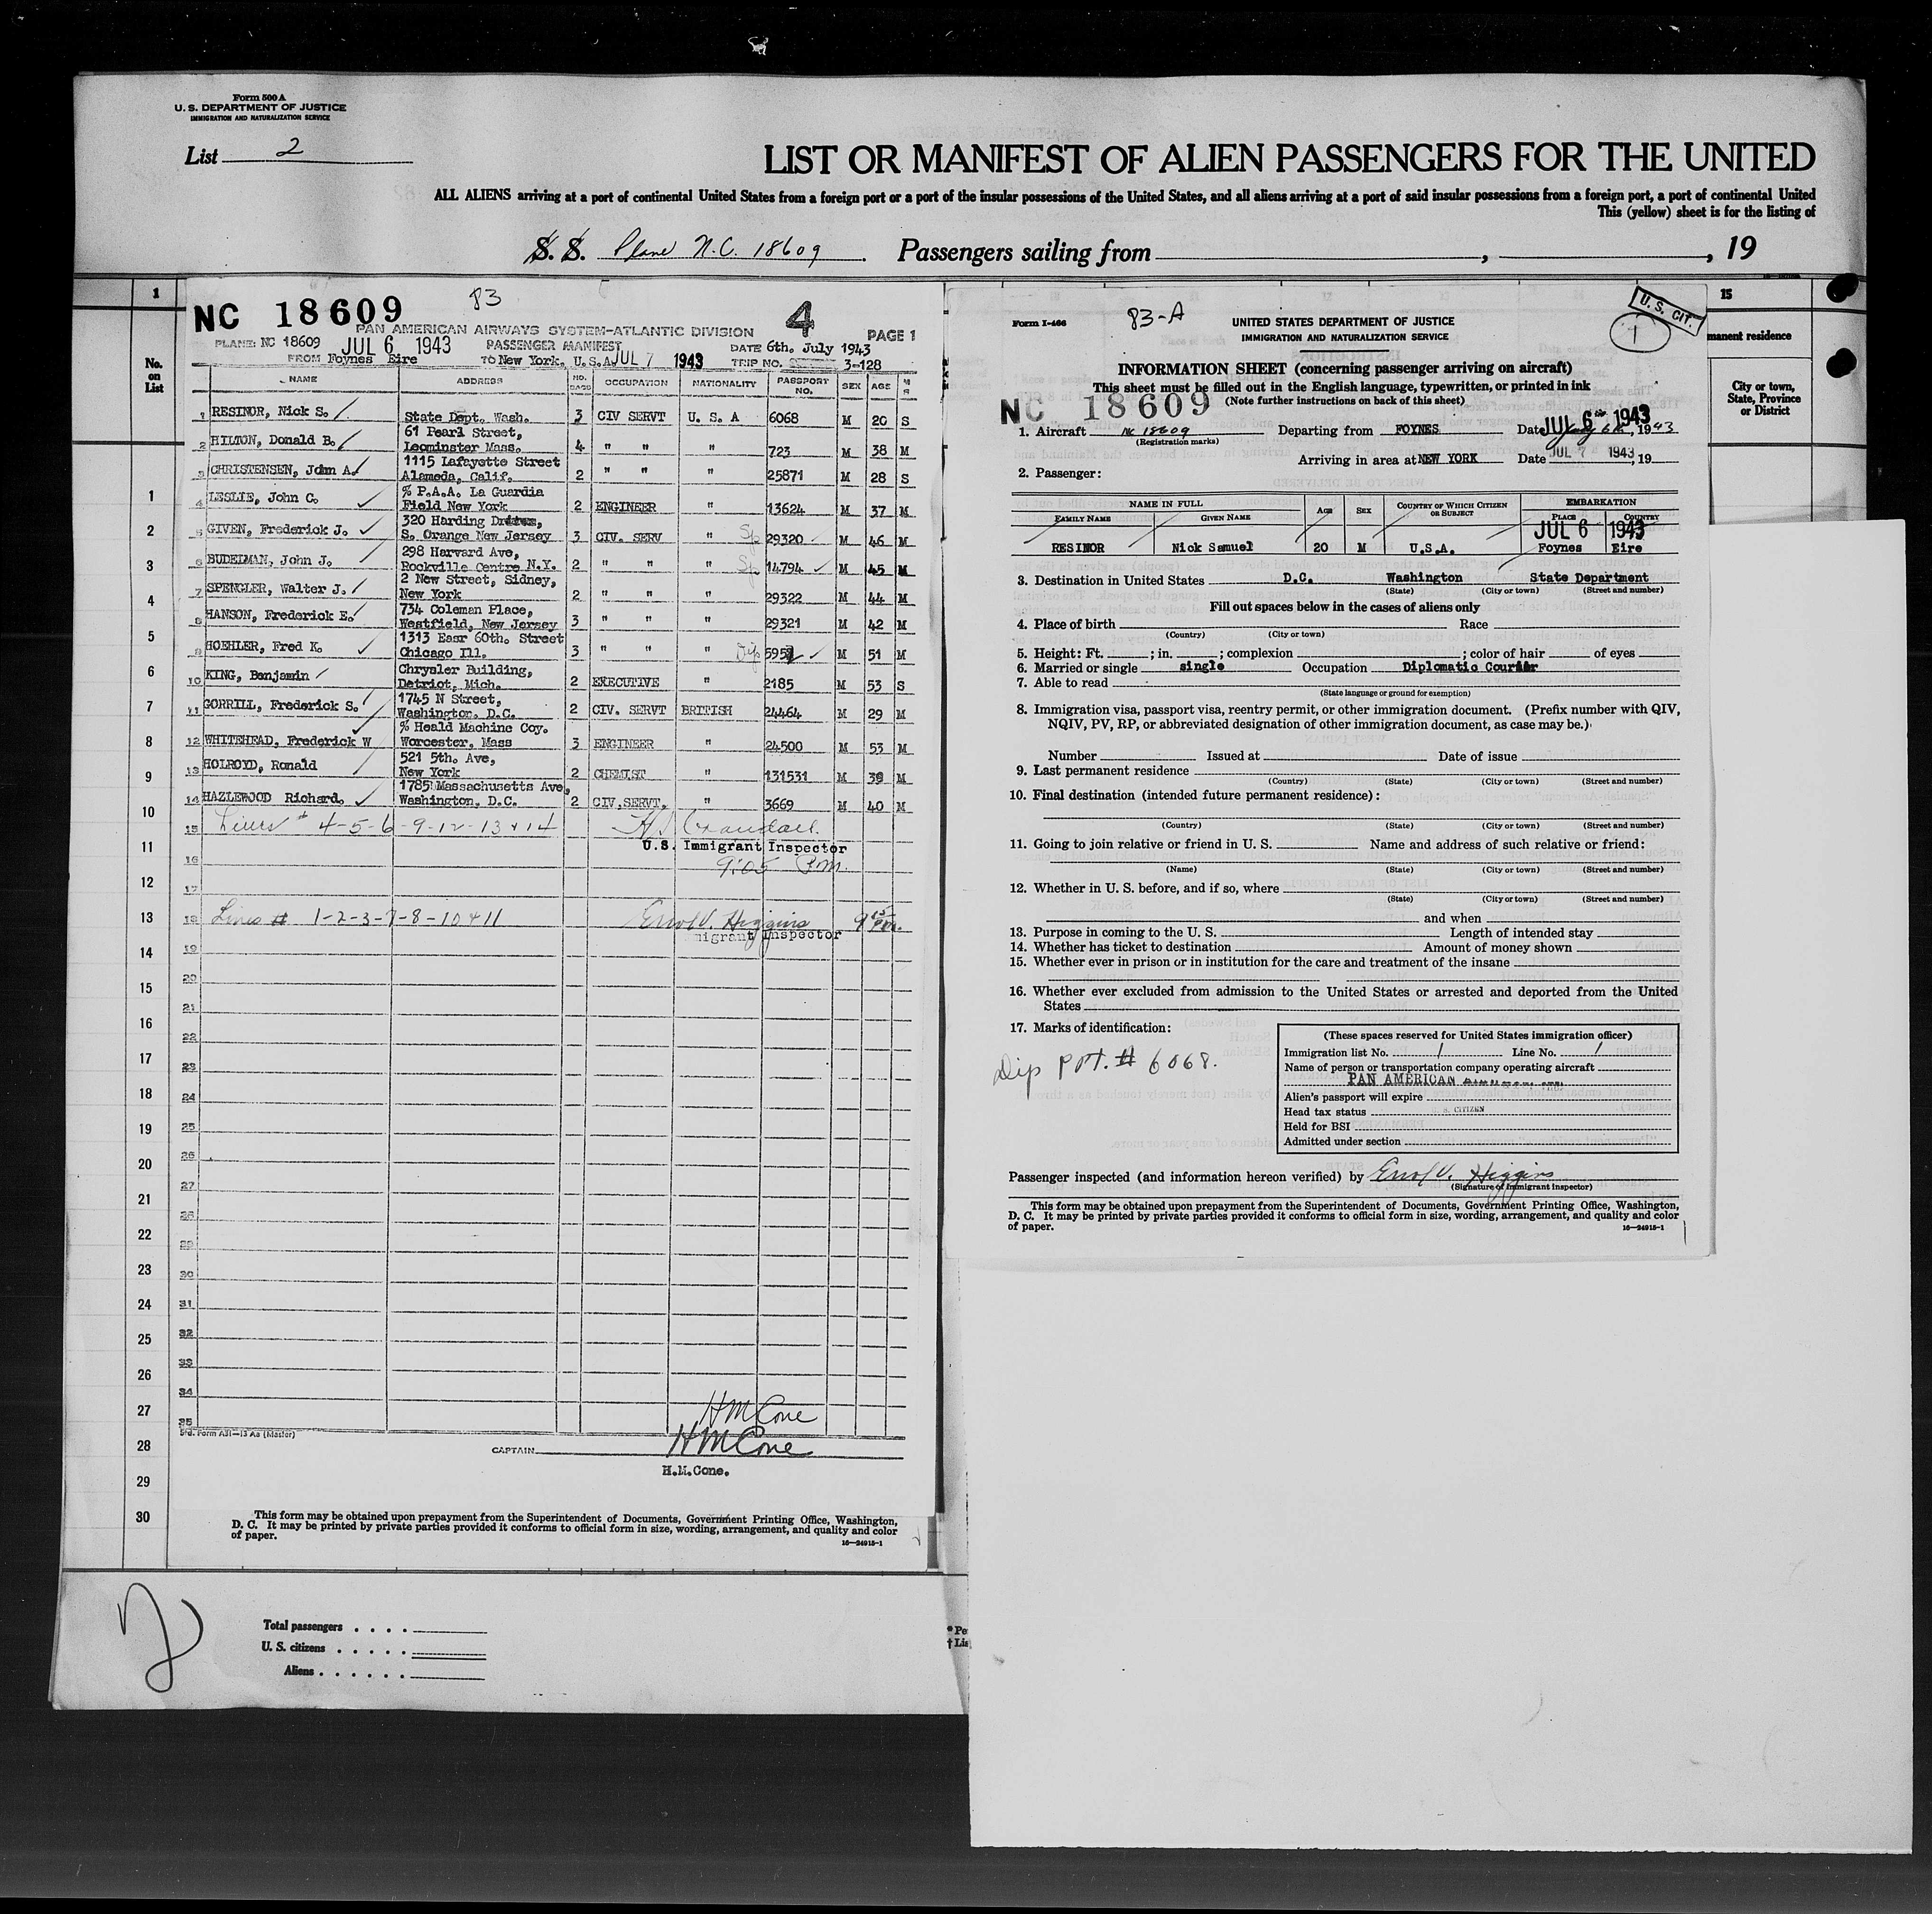 Form 500 A
U. S. DEPARTMENT OF JUSTICE
IMMIGRATION AND NATURALIZATION SERVICE
List 2
LIST OR MANIFEST OF ALIEN PASSENGERS FOR THE UNITED
ALL ALIENS arriving at a port of continental United States from a foreign port or a port of the insular possessions of the United States, and all aliens arriving at a port of said insular possessions from a foreign port, a port of continental United
This (yellow) sheet is for the listing of
S. S. Plane N.C. 18609. Passengers sailing from , , 19
1
No. on List
NC 18609 83 4
PAN AMERICAN AIRWAYS SYSTEM-ATLANTIC DIVISION PAGE 1
PLANE: NC 18609 JUL 6 1943 PASSENGER MANIFEST DATE 6th. July 1943
FROM Foynes Eire TO New York, U.S.A JUL 7 1943 TRIP NO. 3-128
NAME ADDRESS NO. BAGS OCCUPATION NATIONALITY PASSPORT NO. SEX AGE M S
1 RESINOR, Nick S. State Dept. Wash. 3 CIV SERVT U. S. A 6068 M 20 S
2 HILTON, Donald B. 61 Pearl Street, Leominster Mass. 4 " " " 723 M 38 M
3 CHRISTENSEN, John A. 1115 Lafayette Street Alameda, Calif. 2 " " " 25871 M 28 S
4 LESLIE, John C. % P.A.A. La Guardia Field New York 2 ENGINEER " 13624 M 37 M
5 GIVEN, Frederick J. 320 Harding Drive, S. Orange New Jersey 3 CIV. SERV " Sp 29320 M 46 M
6 BUDELMAN, John J. 298 Harvard Ave, Rockville Centre N.Y. 2 " " " Sp 14794 M 45 M
7 SPENGLER, Walter J. 2 New Street, Sidney, New York 2 " " " 29322 M 44 M
8 HANSON, Frederick E. 734 Coleman Place, Westfield, New Jersey 3 " " " 29321 M 42 M
9 HOEHLER, Fred K. 1313 Easr 60th. Street Chicago Ill. 3 " " " Dip 5952 M 51 M
10 KING, Benjamin Chrysler Building, Detriot, Mich. 2 EXECUTIVE " 2185 M 53 S
11 GORRILL, Frederick S. 1745 N Street, Washington. D.C. 2 CIV. SERVT BRITISH 24464 M 29 M
12 WHITEHEAD, Frederick W % Heald Machine Coy. Worcester, Mass 3 ENGINEER " 24500 M 53 M
13 HOLROYD, Ronald 521 5th. Ave, New York 2 CHEMIST " 131531 M 39 M
14 HAZLEWOOD Richard. 1785 Massachusetts Ave, Washington. D.C. 2 CIV.SERVT. " 3669 M 40 M
15 Lines # 4-5-6-9-12-13 & 14 Crandall
U.S. Immigrant Inspector
16 9:05 P.m.
17
18 Lines # 1-2-3-7-8-10 & 11 Errol V. Higgins 9 15 P.m.
migrant Inspector
19
20
21
22
23
24
25
26
27
28
29
30
31
32
33
34
35
HM Cone
Std. Form A31-13 Aa (Master)
CAPTAIN HM Cone
H.M.Cone.
This form may be obtained upon prepayment from the Superintendent of Documents, Government Printing Office, Washington,
D. C. It may be printed by private parties provided it conforms to official form in size, wording, arrangement, and quality and color
of paper.
16—24915-1
1
2
3
4
5
6
7
8
9
10
11
12
13
14
15
16
17
18
19
20
21
22
23
24
25
26
27
28
29
30
2
Total passengers
U. S. citizens
Aliens
* Pe
† Lis
Form I-466 83-A
UNITED STATES DEPARTMENT OF JUSTICE
IMMIGRATION AND NATURALIZATION SERVICE
U. S. CIT.
1
INFORMATION SHEET (concerning passenger arriving on aircraft)
This sheet must be filled out in the English language, typewritten, or printed in ink
(Note further instructions on back of this sheet)
NC 18609 JUL 6 1943
1. Aircraft NC 18609 Departing from FOYNES Date July 6th, 1943
(Registration marks)
Arriving in area at NEW YORK Date JUL 7 1943, 19
2. Passenger:
NAME IN FULL
FAMILY NAME GIVEN NAME AGE SEX COUNTRY OF WHICH CITIZEN OR SUBJECT EMBARKATION
PLACE COUNTRY
JUL 6 1943
RESINOR Nick Samuel 20 M U.S.A. Foynes Eire
3. Destination in United States D.C. Washington State Department
(State) (City or town) (Street and number)
Fill out spaces below in the cases of aliens only
4. Place of birth Race
(Country) (City or town)
5. Height: Ft. ; in. ; complexion ; color of hair of eyes
6. Married or single single Occupation Diplomatic Courier
7. Able to read
(State language or ground for exemption)
8. Immigration visa, passport visa, reentry permit, or other immigration document. (Prefix number with QIV,
NQIV, PV, RP, or abbreviated designation of other immigration document, as case may be.)
Number Issued at Date of issue
9. Last permanent residence
(Country) (State) (City or town) (Street and number)
10. Final destination (intended future permanent residence):
(Country) (State) (City or town) (Street and number)
11. Going to join relative or friend in U. S. Name and address of such relative or friend:
(Name) (State) (City or town) (Street and number)
12. Whether in U. S. before, and if so, where
(State) (City or town) (Street and number)
and when
13. Purpose in coming to the U. S. Length of intended stay
14. Whether has ticket to destination Amount of money shown
15. Whether ever in prison or in institution for the care and treatment of the insane
16. Whether ever excluded from admission to the United States or arrested and deported from the United
States
17. Marks of identification:
Dip PPT. # 6068.
(These spaces reserved for United States immigration officer)
Immigration list No. 1 Line No. 1
Name of person or transportation company operating aircraft
PAN AMERICAN
Alien's passport will expire
Head tax status U. S. CITIZEN
Held for BSI
Admitted under section
Passenger inspected (and information hereon verified) by Errol V. Higgins
(Signature of Immigrant Inspector)
This form may be obtained upon prepayment from the Superintendent of Documents, Government Printing Office, Washington,
D. C. It may be printed by private parties provided it conforms to official form in size, wording, arrangement, and quality and color
of paper.
16—24915-1
15
manent residence
City or town,
State, Province
or District